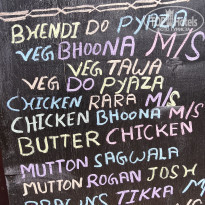 BHENDI DO PYAZA
VEG BHOONA M/S
VEG TAWA
VEG DO PYAZA
CHICKEN RARA M/S
CHICKEN BHOONA M/S
BUTTER CHICKEN
MUTTON SAGWALA
MUTTON ROGAN JOSH
PRAWNS TIKKA M